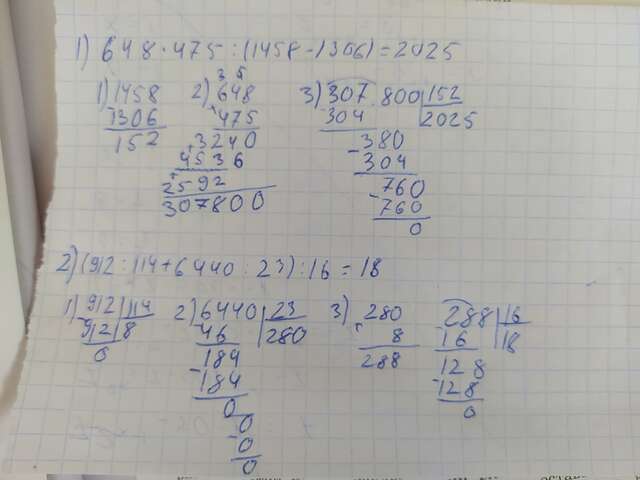 1) 648·475:(1458-1306)=2025
1) 1458 2) 648 3) 307800 152
1306 475 304 2025
152 3240 380
4536 304
2592 760
307800 760
0
2) (912:114+6440:23):16=18
1) 912 114 2) 6440 23 3) 280 288 16
912 8 46 280 8 16 18
0 184 288 128
184 128
0 0
0
0
0